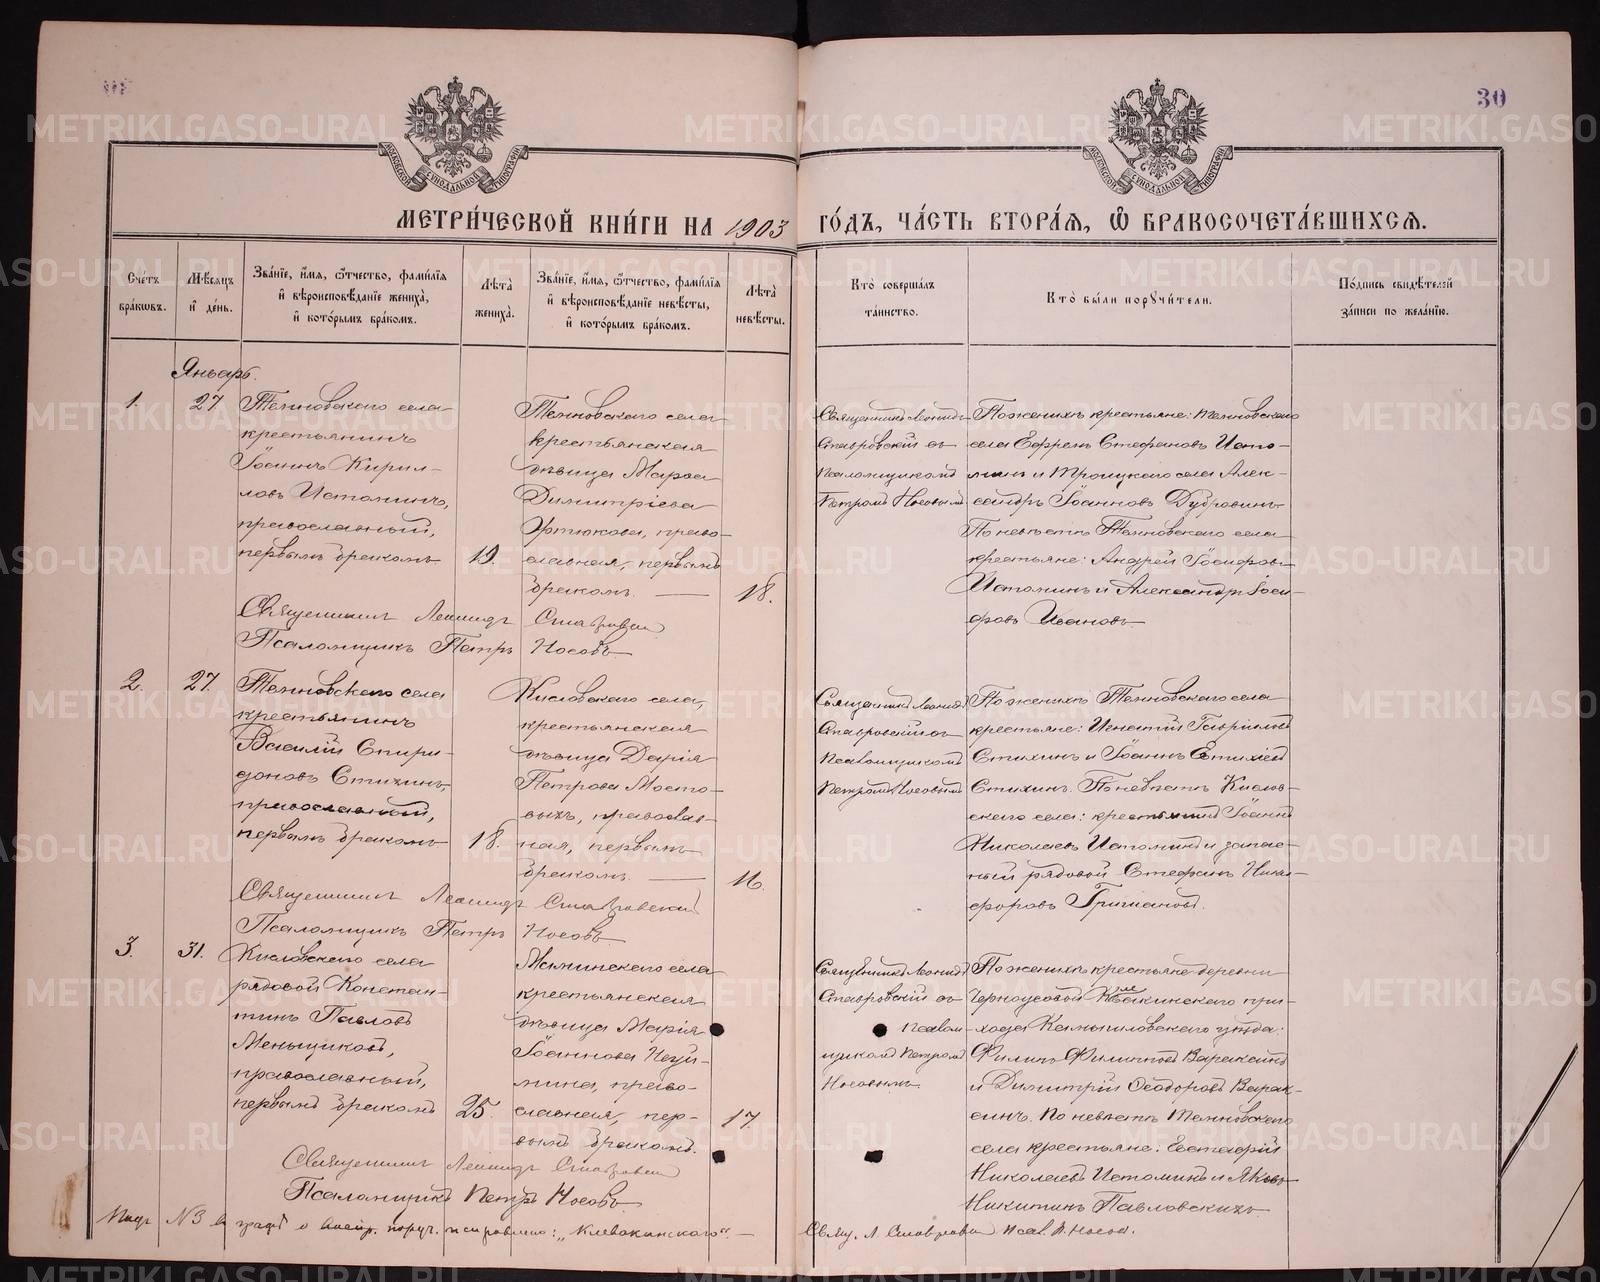 30
МЕТРИ́ЧЕСКОЙ КНИ́ГИ НА 1903 ГО́ДЪ, ЧА́СТЬ ВТОРА́Я, Ѽ БРАКОСОЧЕТА́ВШИХСЯ.
Сче́тъ бра́кѡвъ.
Мѣ́сяцъ и҆ де́нь.
Зва́нїе, и҆́мя, ѻ҆́тчество, фами́лїя и҆ вѣроисповѣ́данїе жениха̀, и҆ кото́рымъ бра́комъ.
Лѣ́та жениха̀.
Зва́нїе, и҆́мя, ѻ҆́тчество, фами́лїя и҆ вѣроисповѣ́данїе невѣ́сты, и҆ кото́рымъ бра́комъ.
Лѣ́та невѣ́сты.
Кто̀ соверша́лъ та́инство.
Кто̀ бы́ли порꙋчи́тели.
По́дпись свидѣ́телей за́писи по жела́нїю.
Январь.
1.
27
Темновского села
крестьянинъ
Іоаннъ Кирил-
ловъ Истоминъ,
православный,
первымъ бракомъ
19.
Темновского села
крестьянская
дѣвица Марѳа
Димитріева
Уртюкова, право-
славная, первымъ
бракомъ.
18.
Священникъ Леонидъ
Ставровскій съ
псаломщикомъ
Петромъ Носовымъ
По женихѣ крестьяне: Темновского
села Ефремъ Стефановъ Исто-
минъ и Троицкаго села Алек-
сандръ Іоанновъ Дубровинъ.
По невѣстѣ Темновского села
крестьяне: Андрей Іосифовъ
Истоминъ и Александръ Іоси-
фовъ Ивановъ.
Священникъ Леонидъ Ставровскій
Псаломщикъ Петръ Носовъ
2.
27.
Темновского села
крестьянинъ
Василій Спири-
доновъ Стихинъ,
православный,
первымъ бракомъ
18.
Кисловского села,
крестьянская
дѣвица Дарія
Петрова Мосто-
выхъ, православ-
ная, первымъ
бракомъ.
16.
Священникъ Леонидъ
Ставровскій съ
псаломщикомъ
Петромъ Носовымъ
По женихѣ Темновского села
крестьяне: Игнатій Гавріиловъ
Стихинъ и Іоаннъ Евтихіевъ
Стихинъ. По невѣстѣ Кислов-
ского села: крестьянинъ Іоаннъ
Николаевъ Истоминъ и запас-
ный рядовой Стефанъ Ники-
форовъ
Священникъ Леонидъ Ставровскій
Псаломщикъ Петръ Носовъ
3.
31.
Кисловского села
рядовой Констан-
тинъ Павловъ
Меньщиковъ,
православный,
первымъ бракомъ
25.
Маминского села
крестьянская
дѣвица Марія
Іоаннова
православная, пер-
вымъ бракомъ.
17
Священникъ Леонидъ
Ставровскій съ
псалом-
щикомъ Петромъ
Носовымъ
По женихѣ крестьяне деревни
Черноусовой Клевакинского при-
хода Камышловскаго уѣзда:
Филипъ Филипповъ Вараксинъ
и Димитрій Ѳеодоровъ Варак-
синъ. По невѣстѣ Темновского
села крестьяне: Евстафій
Николаевъ Истоминъ и Яковъ
Никитинъ Павловскихъ
Священникъ Леонидъ Ставровскій
Псаломщикъ Петръ Носовъ
Подъ №3 въ графѣ о поруч. исправлено: „Клевакинского".— Свящ. Л. Ставровскій Псал. П. Носовъ.
METRIKI.GASO-URAL.RU